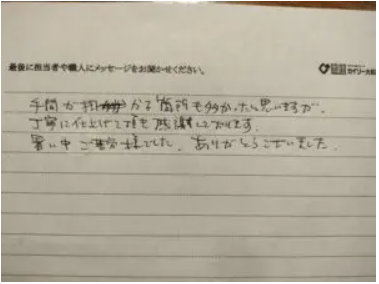 最後に担当者や職人にメッセージをお聞かせください。
手間が かかる箇所も多かったと思いますが、
丁寧に仕上げて頂き感謝しております。
暑い中ご苦労様でした。ありがとうございました。